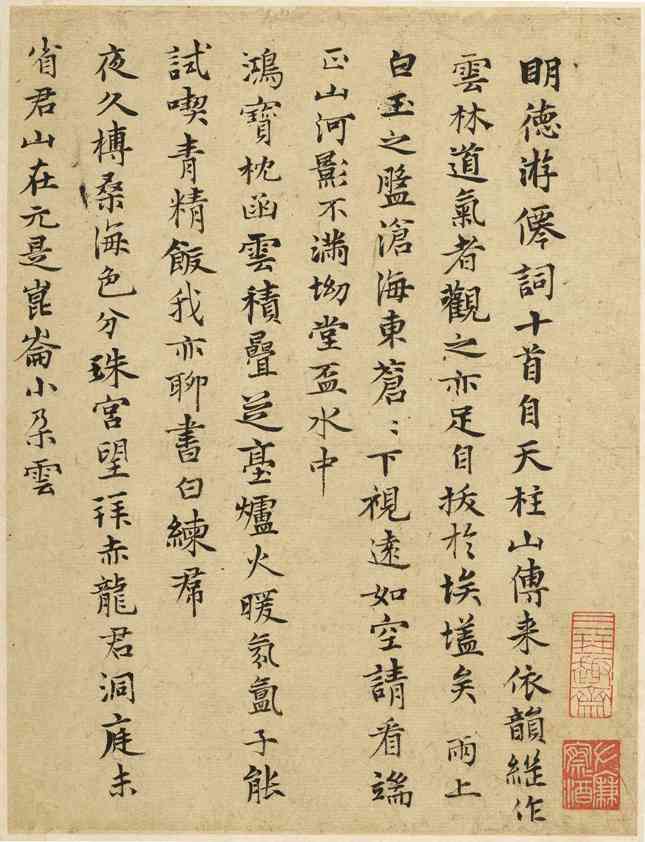 明德游僊詞十首自天柱山傳来依韻繼作
雲林道氣者觀之亦足自拔於埃壒矣 雨上
白玉之盤滄海東蒼〻下視遠如空請看端
正山河影不滿坳堂盃水中
鴻寶枕函雲積疊芝臺爐火暖氛氳子能
試喫青精飯我亦聊書白練帬
夜久榑桑海色分珠宮望拜赤龍君洞庭未
省君山在元是崑崙小朶雲
三琴趣齋